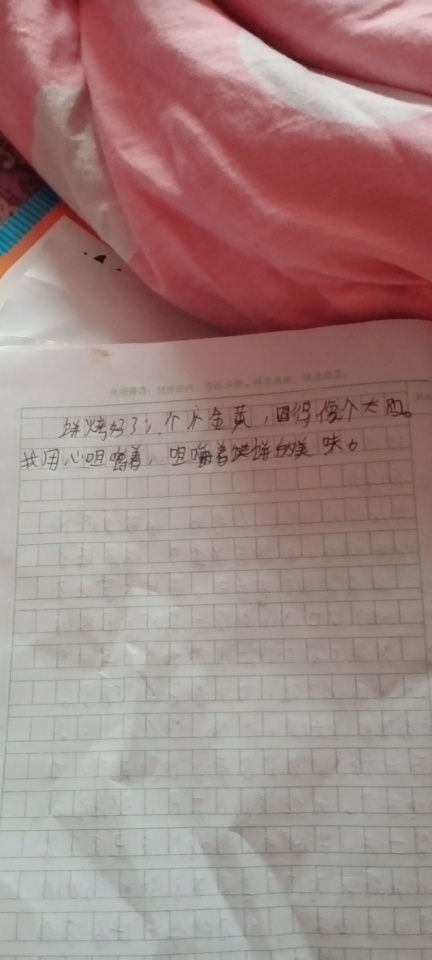 饼烤好了，个个金黄，圆得像个太阳。
我用心咀嚼着，咀嚼着烘饼的美味。